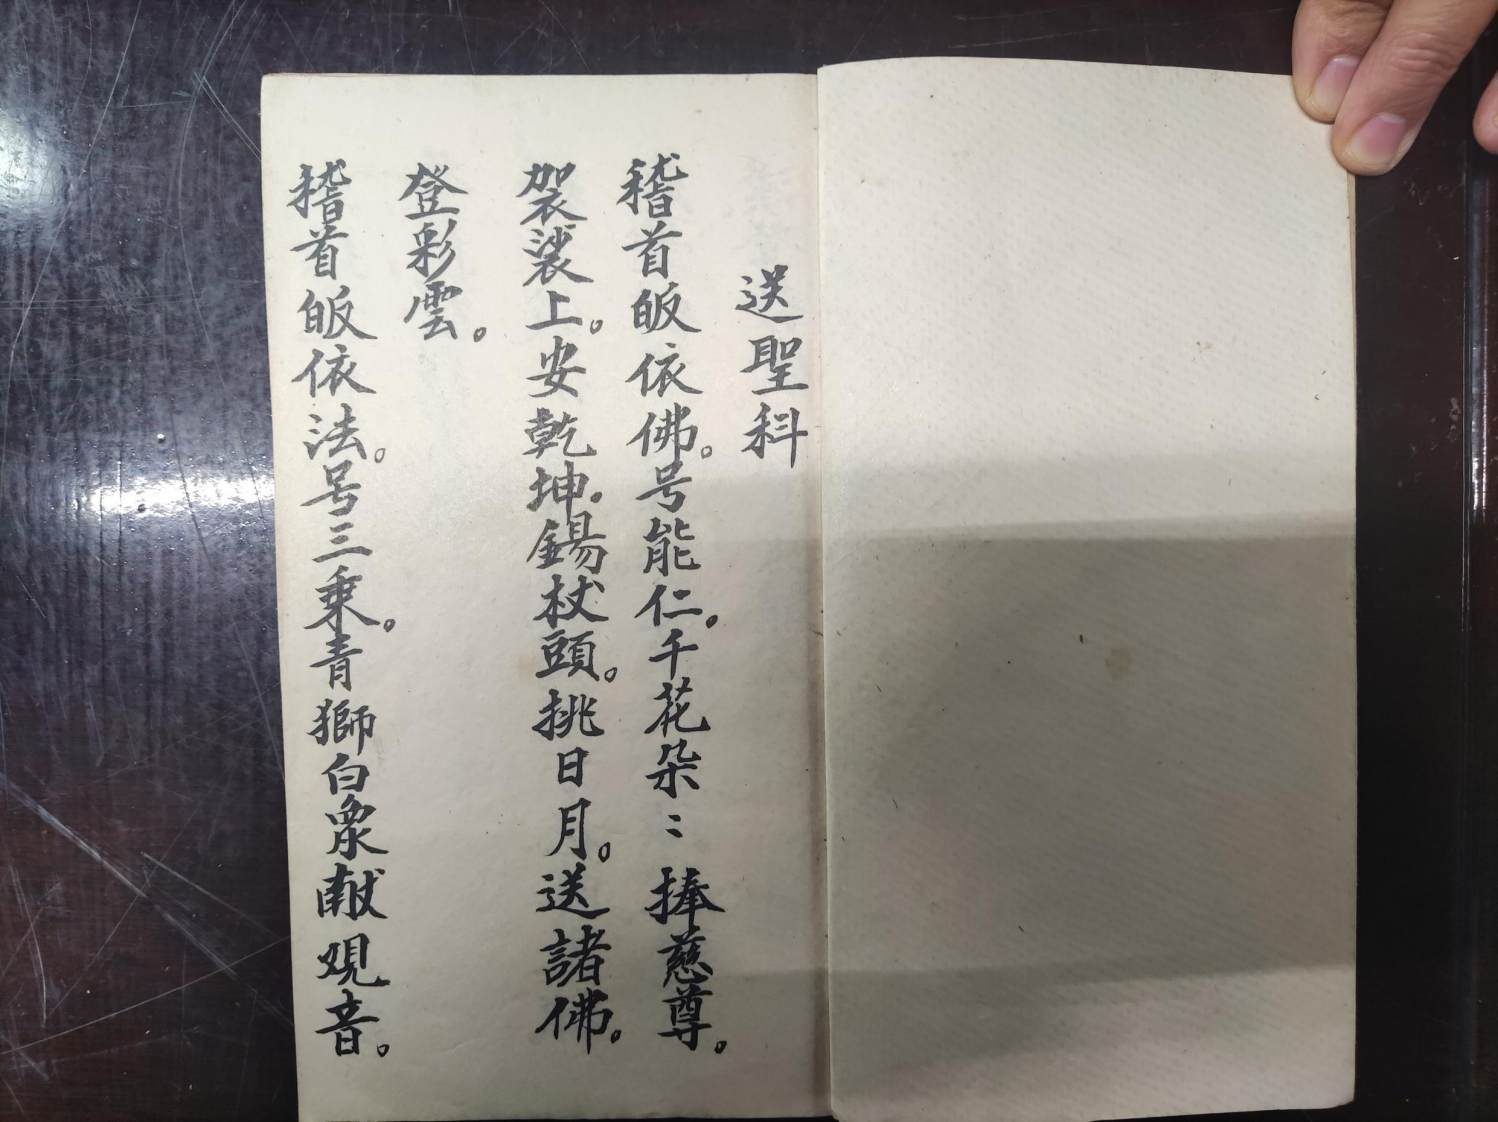 送聖科
稽首皈依佛。号能仁。千花朶〻捧慈尊。
袈裟上。安乾坤。錫杖頭。挑日月。送諸佛。
登彩雲。
稽首皈依法。号三乗。青獅白象献观音。